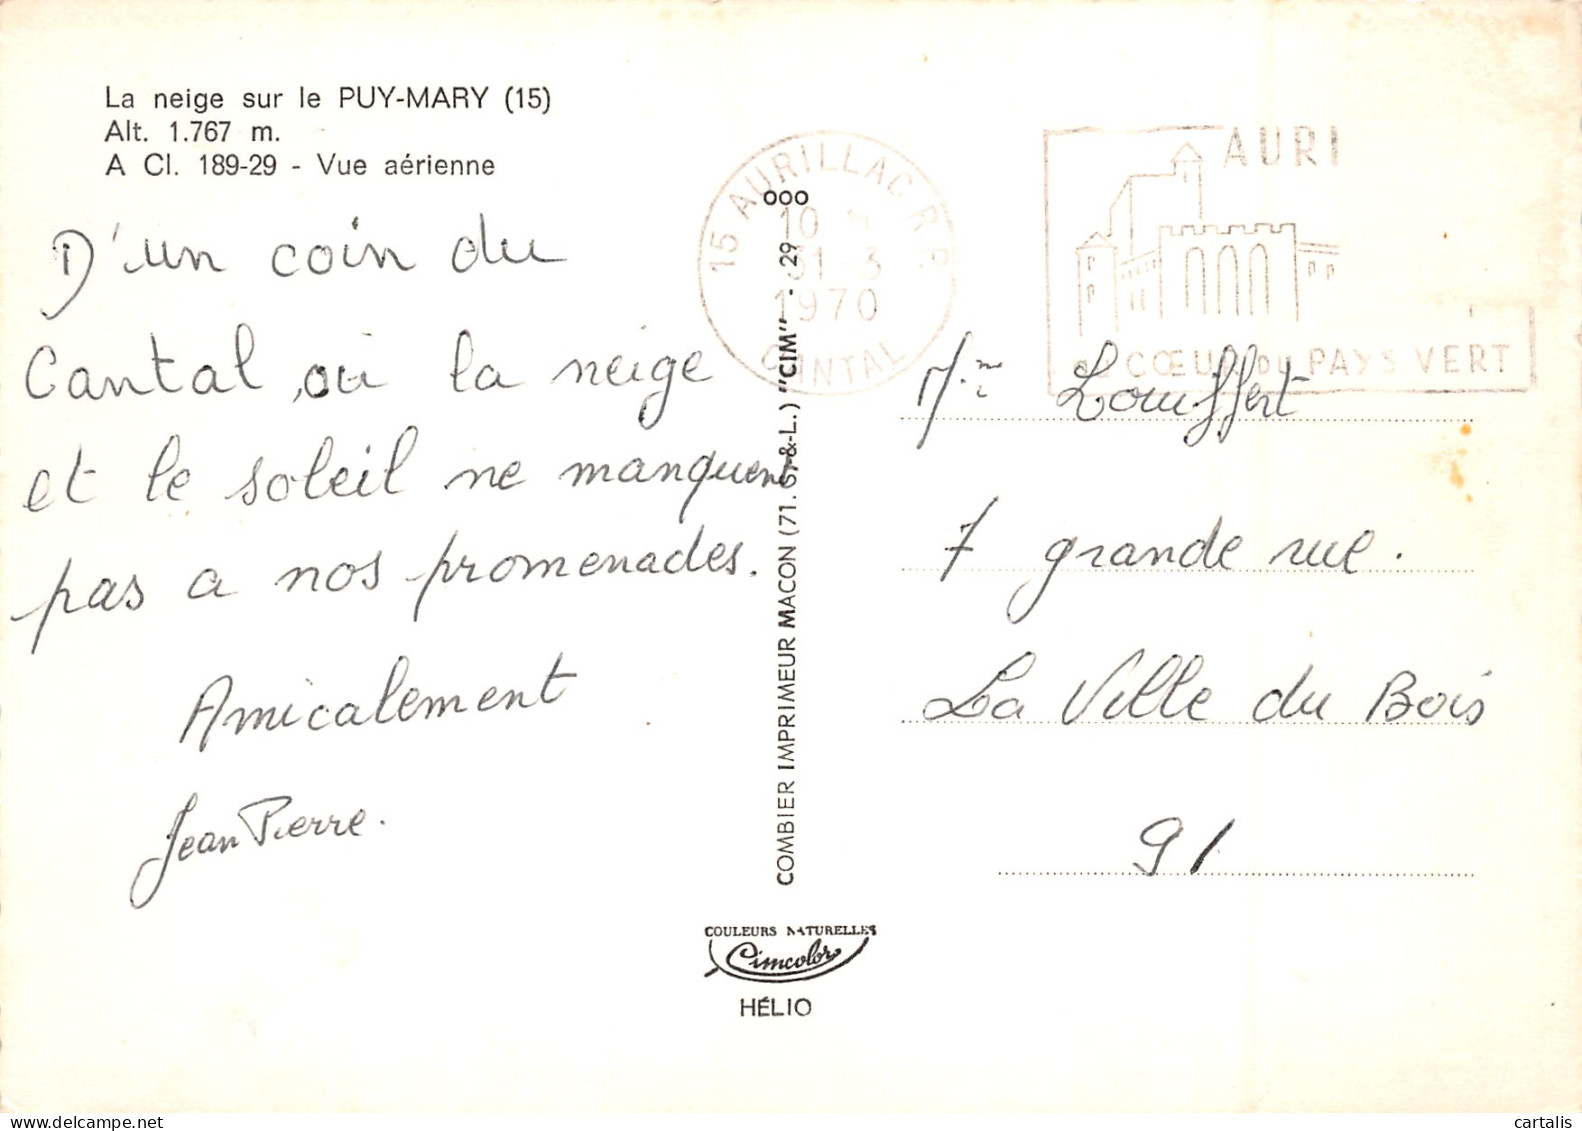 La neige sur le PUY-MARY (15)
Alt. 1.767 m.
A Cl. 189-29 - Vue aérienne
D'un coin du
Cantal, où la neige
et le soleil ne manquent
pas a nos promenades.
Amicalement
Jean Pierre.
15 AURILLAC R.P.
10 H
31-3
1970
CANTAL
AURI
au CŒUR DU PAYS VERT
COMBIER IMPRIMEUR MACON (71. S.-&-L.) "CIM" - 29
Mme Louffert
7 grande rue.
La Ville du Bois
91
COULEURS NATURELLES
Cimcolor
HÉLIO
cartalis